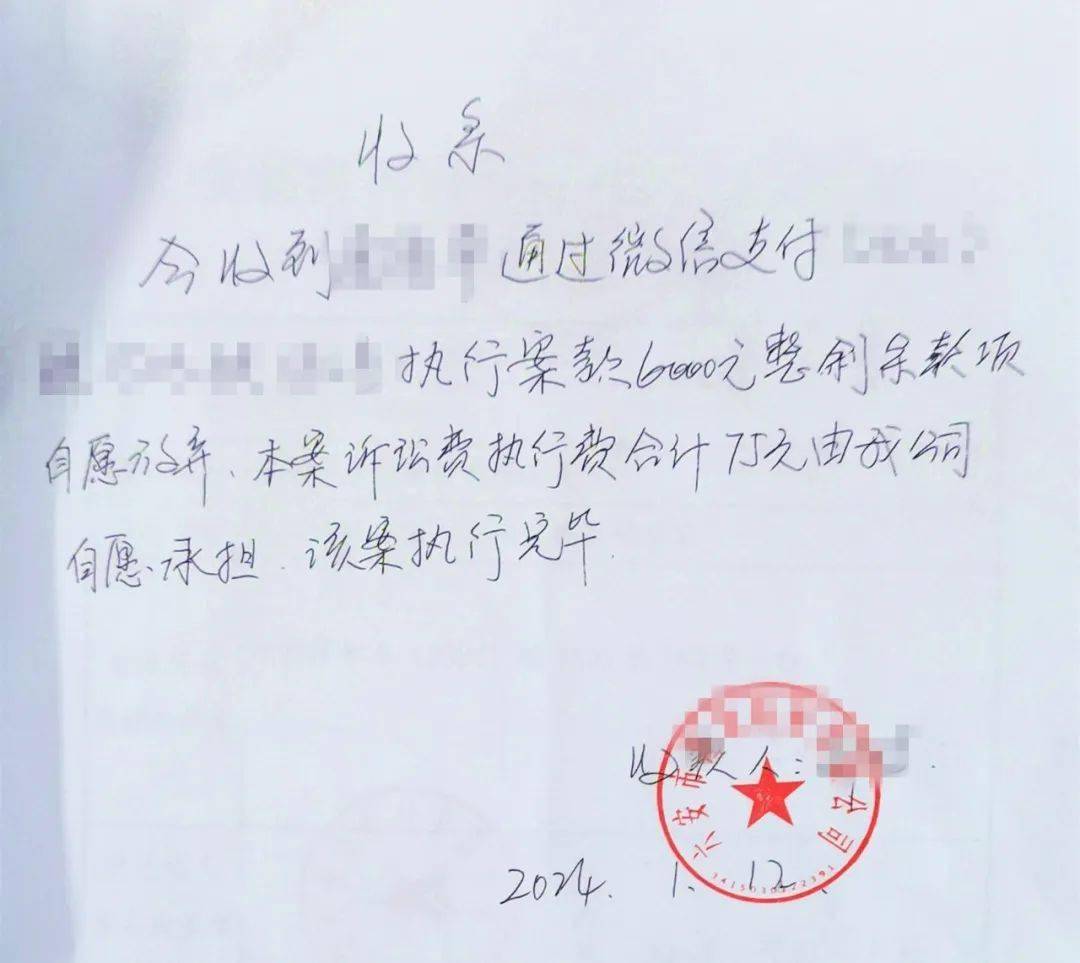 收条
今收到 通过微信支付
执行案款6000元整剩余款项
自愿放弃、本案诉讼费执行费合计75元由我公司
自愿承担.该案执行完毕.
收款人:
六安市 公司
2024.1.12.